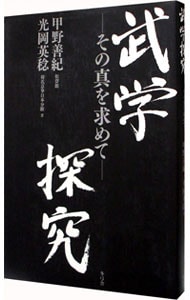 武学
探究
―その真を求めて―
甲野善紀
松聲館
光岡英稔